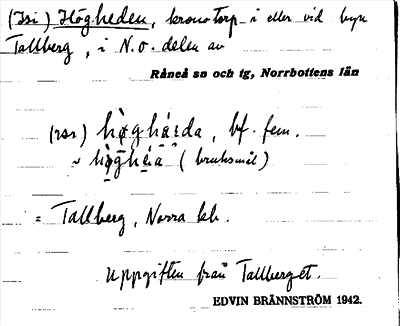 (Isi) Högheden, kronotorp i eller vid byn
Tallberg, i N.O. delen av
Råneå sn och tg, Norrbottens län
(rsr.) hø̀ghá̱rda, bf. fem.
~ (bruksmål)
= Tallberg, Norra kb.
Uppgiften från Tallberget.
EDVIN BRÄNNSTRÖM 1942.